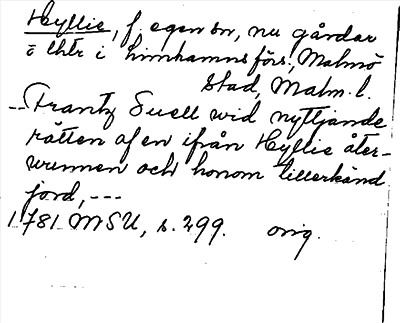 Hyllie, f. egen sn, nu gårdar
o lhtr i Limhamns förs., Malmö
stad, Malm. l.
--Frantz Suell wid nyttjande
rätten af en ifrån Hyllie åter-
wunnen och honom tillerkänd
jord, ---
1781 MSU, s. 299. orig.